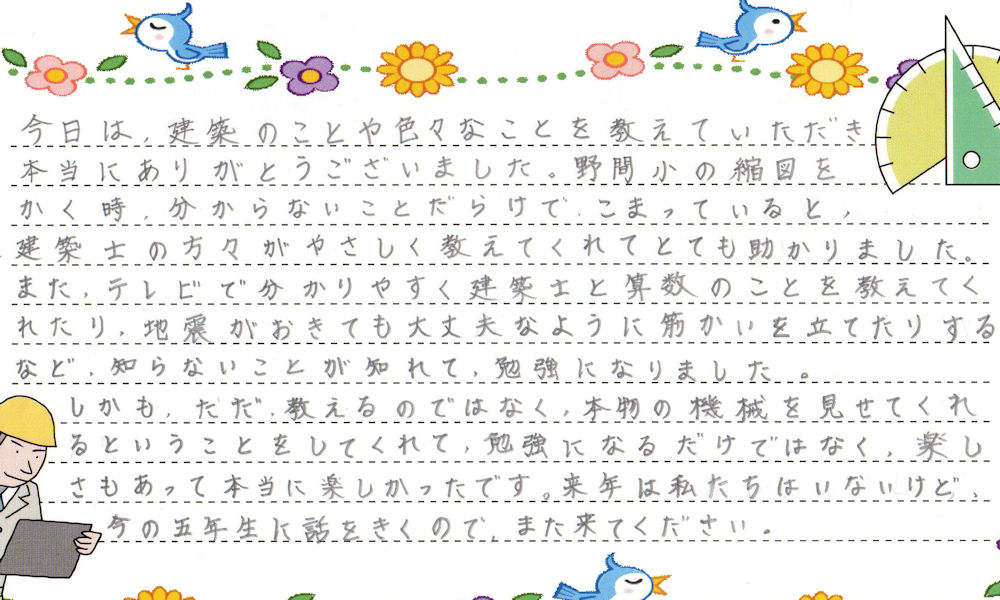 今日は、建築のことや色々なことを教えていただき
本当にありがとうございました。野間小の縮図を
かく時、分からないことだらけで、こまっていると、
建築士の方々がやさしく教えてくれてとても助かりました。
また、テレビで分かりやすく建築士と算数のことを教えてく
れたり、地震がおきても大丈夫なように筋かいを立てたりする
など、知らないことが知れて、勉強になりました。
しかも、ただ、教えるのではなく、本物の機械を見せてくれ
るということをしてくれて、勉強になるだけではなく、楽し
さもあって本当に楽しかったです。来年は私たちはいないけど、
今の五年生に話をきくので、また来てください。